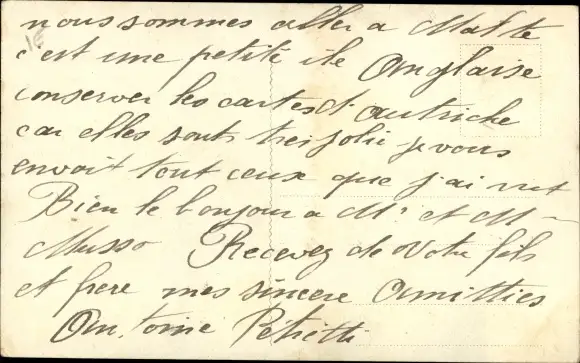 nous sommes aller a Malte
c'est une petite ile Anglaise
conserver les cartes d'autriche
car elles sont tres jolie je vous
envoit tout ceux que j'ai
Bien le bonjour a Mr et M
Musso Recevez de Votre fils
et frere mes sincere Amitties
Antoine